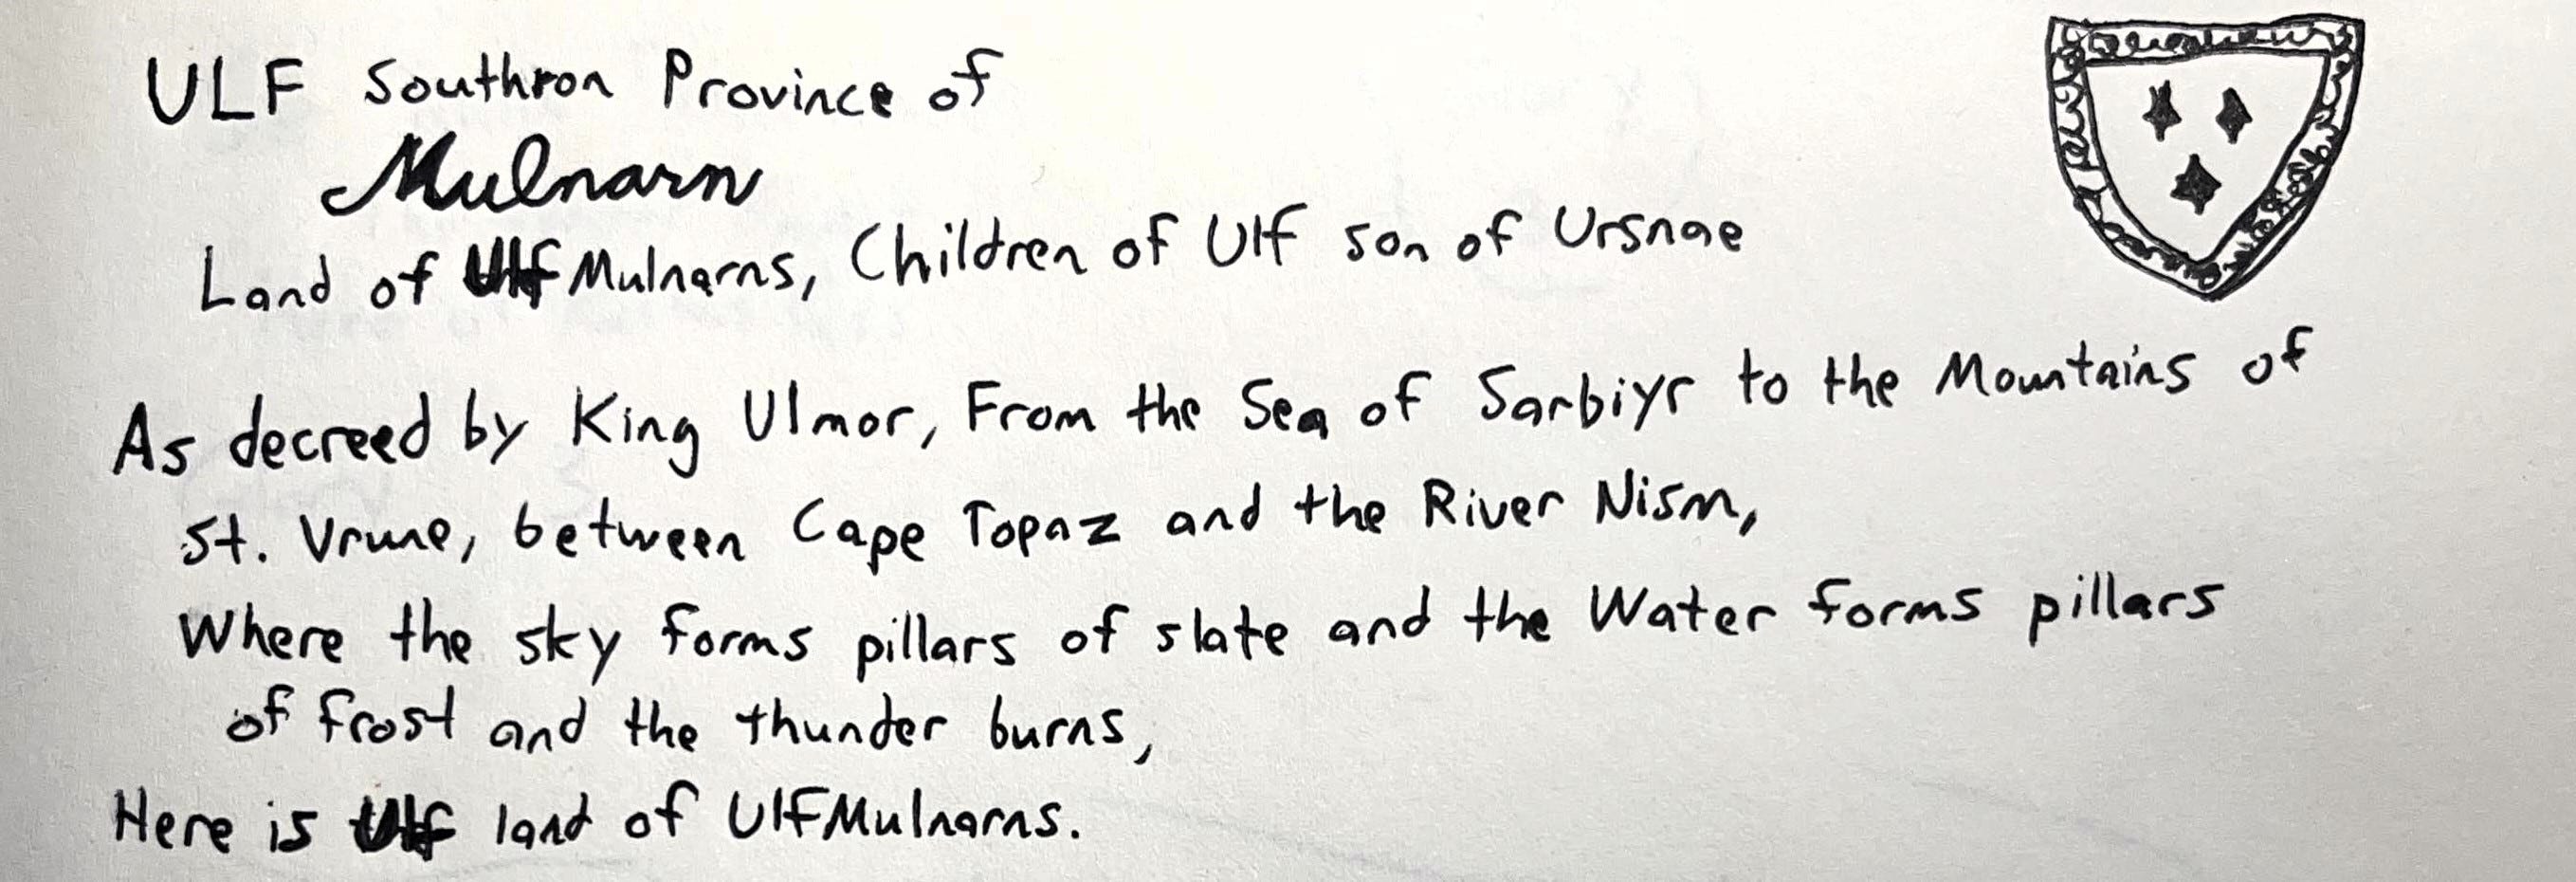 ULF Southron Province of
Mulnarn
Land of Ulf Mulnarns, Children of Ulf son of Ursnae
As decreed by King Ulmor, From the Sea of Sarbiyr to the Mountains of
St. Vrune, between Cape Topaz and the River Nism,
Where the sky forms pillars of slate and the Water forms pillars
of frost and the thunder burns,
Here is Ulf land of UlfMulnarns.